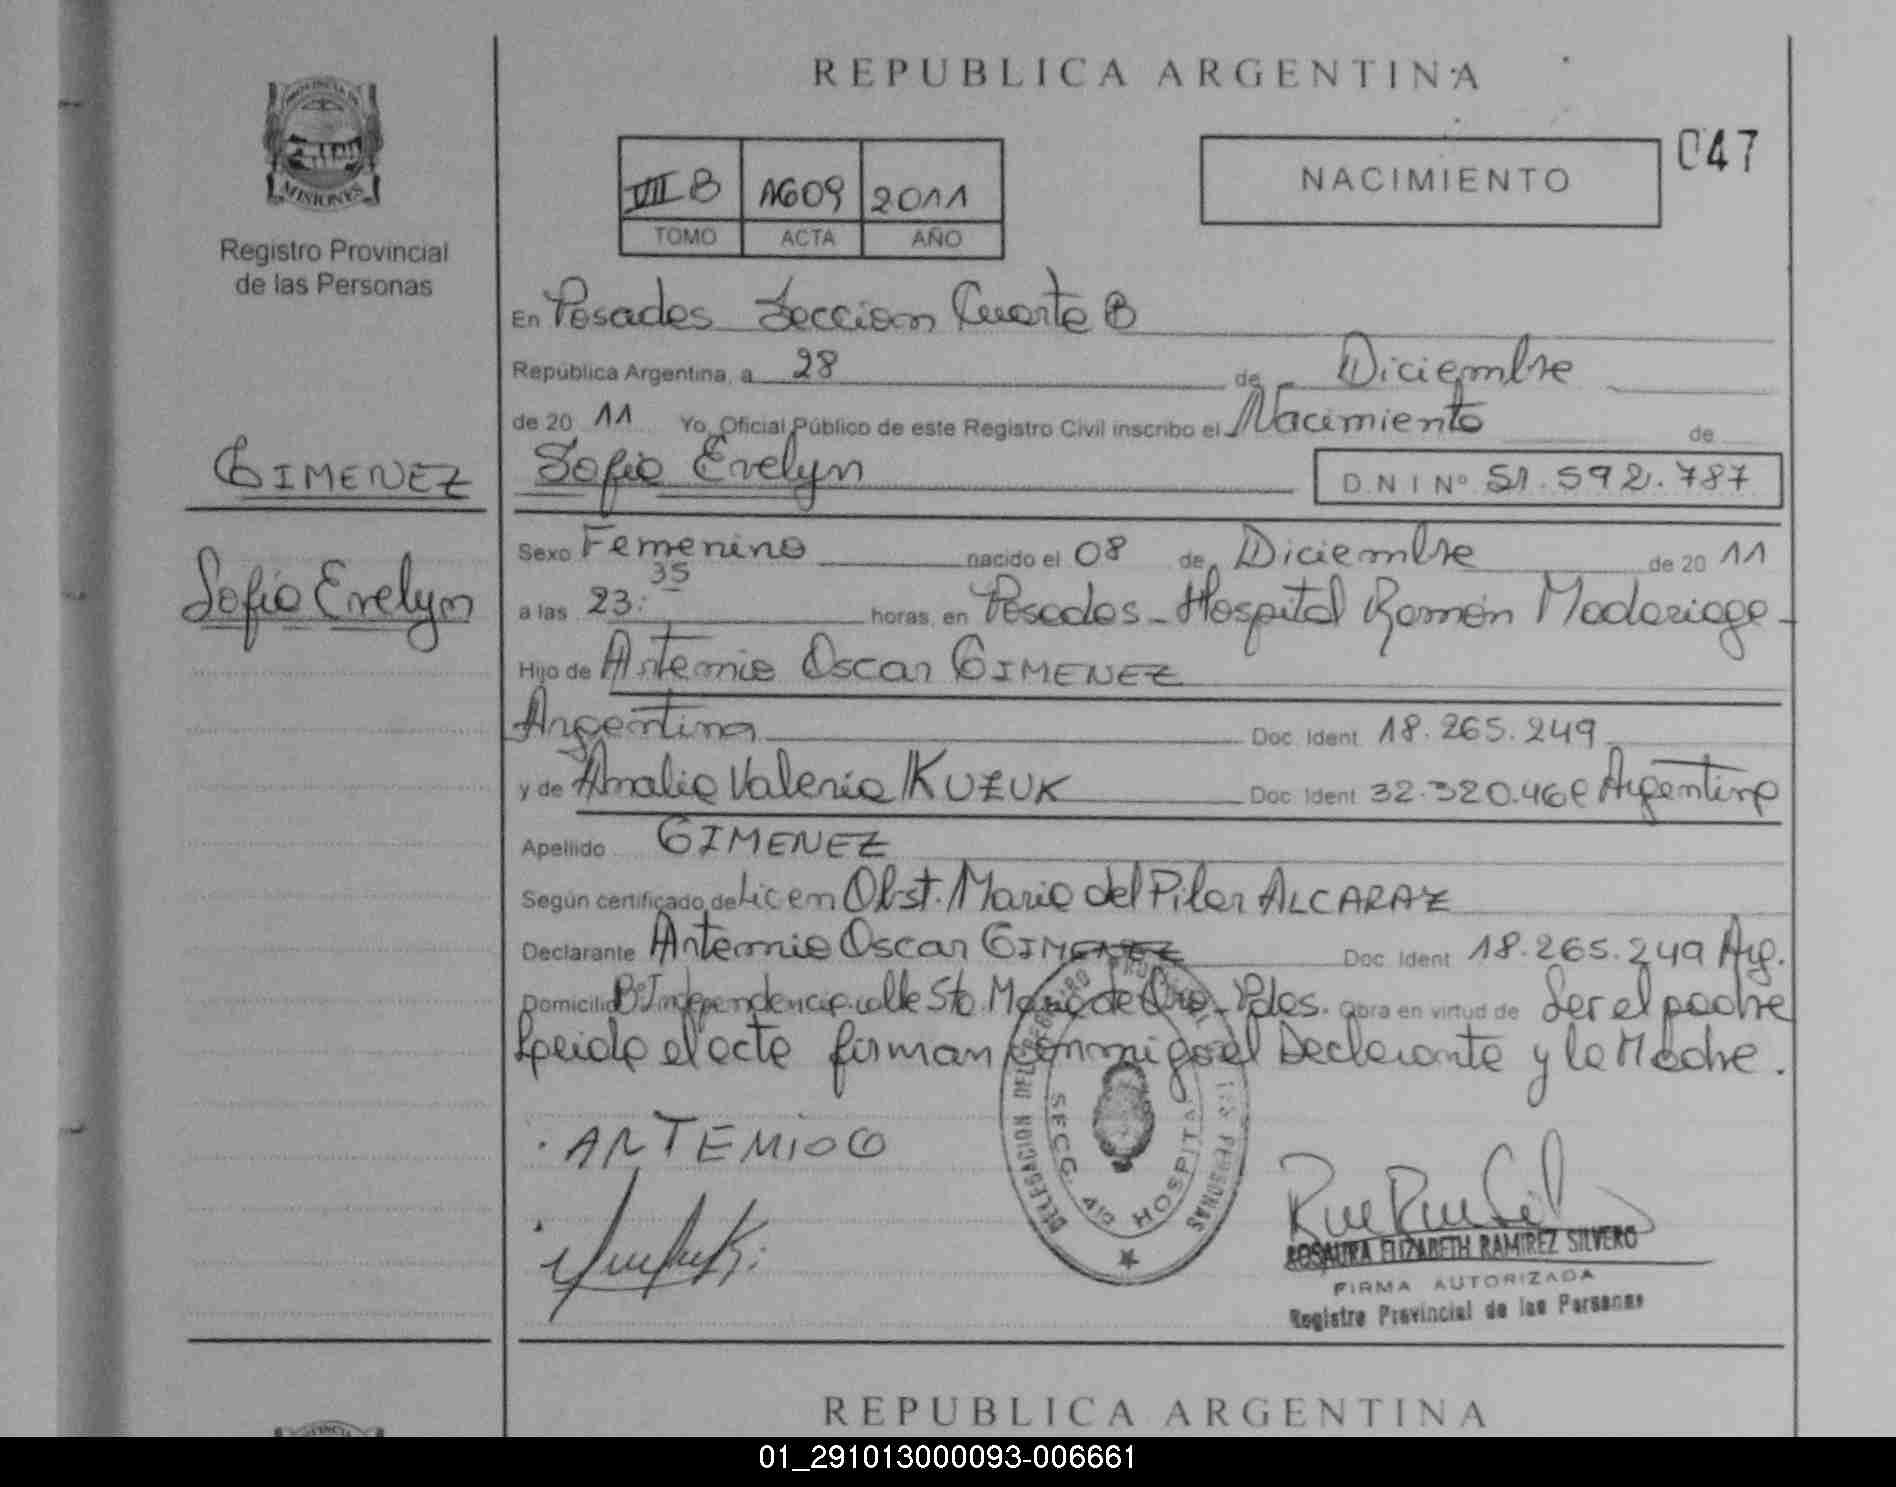 REPUBLICA ARGENTINA
PROVINCIA DE
MISIONES
Registro Provincial
de las Personas
VII B 1609 2011
TOMO ACTA AÑO
NACIMIENTO
047
En Posadas Seccion Cuarta B
República Argentina, a 28 de Diciembre
de 20 11 Yo, Oficial Público de este Registro Civil inscribo el Nacimiento de
GIMENEZ
Sofia Evelyn
D.N.I Nº 51.592.787
Sofia Evelyn
Sexo Femenino nacido el 08 de Diciembre de 20 11
a las 23:35 horas, en Posadas - Hospital Ramón Madariaga -
Hijo de Artemio Oscar GIMENEZ
Argentina Doc. Ident. 18.265.249
y de Amalia Valeria KUZUK Doc. Ident. 32.320.46 Argentina
Apellido GIMENEZ
Según certificado de Licen Obst. Maria del Pilar ALCARAZ
Declarante Artemio Oscar GIMENEZ Doc. Ident. 18.265.249 Arg.
Domicilio Bº Independencia calle Sta. Maria de Oro - Pdas. Obra en virtud de Ser el padre
Leida el acta firman conmigo el Declarante y la Madre.
DELEGACION DEL REGISTRO PROVINCIAL DE LAS PERSONAS
SECC. 4ta HOSPITAL
ARTEMIO G
ROSAURA ELIZABETH RAMIREZ SILVERO
FIRMA AUTORIZADA
Registro Provincial de las Personas
REPUBLICA ARGENTINA
01_291013000093-006661